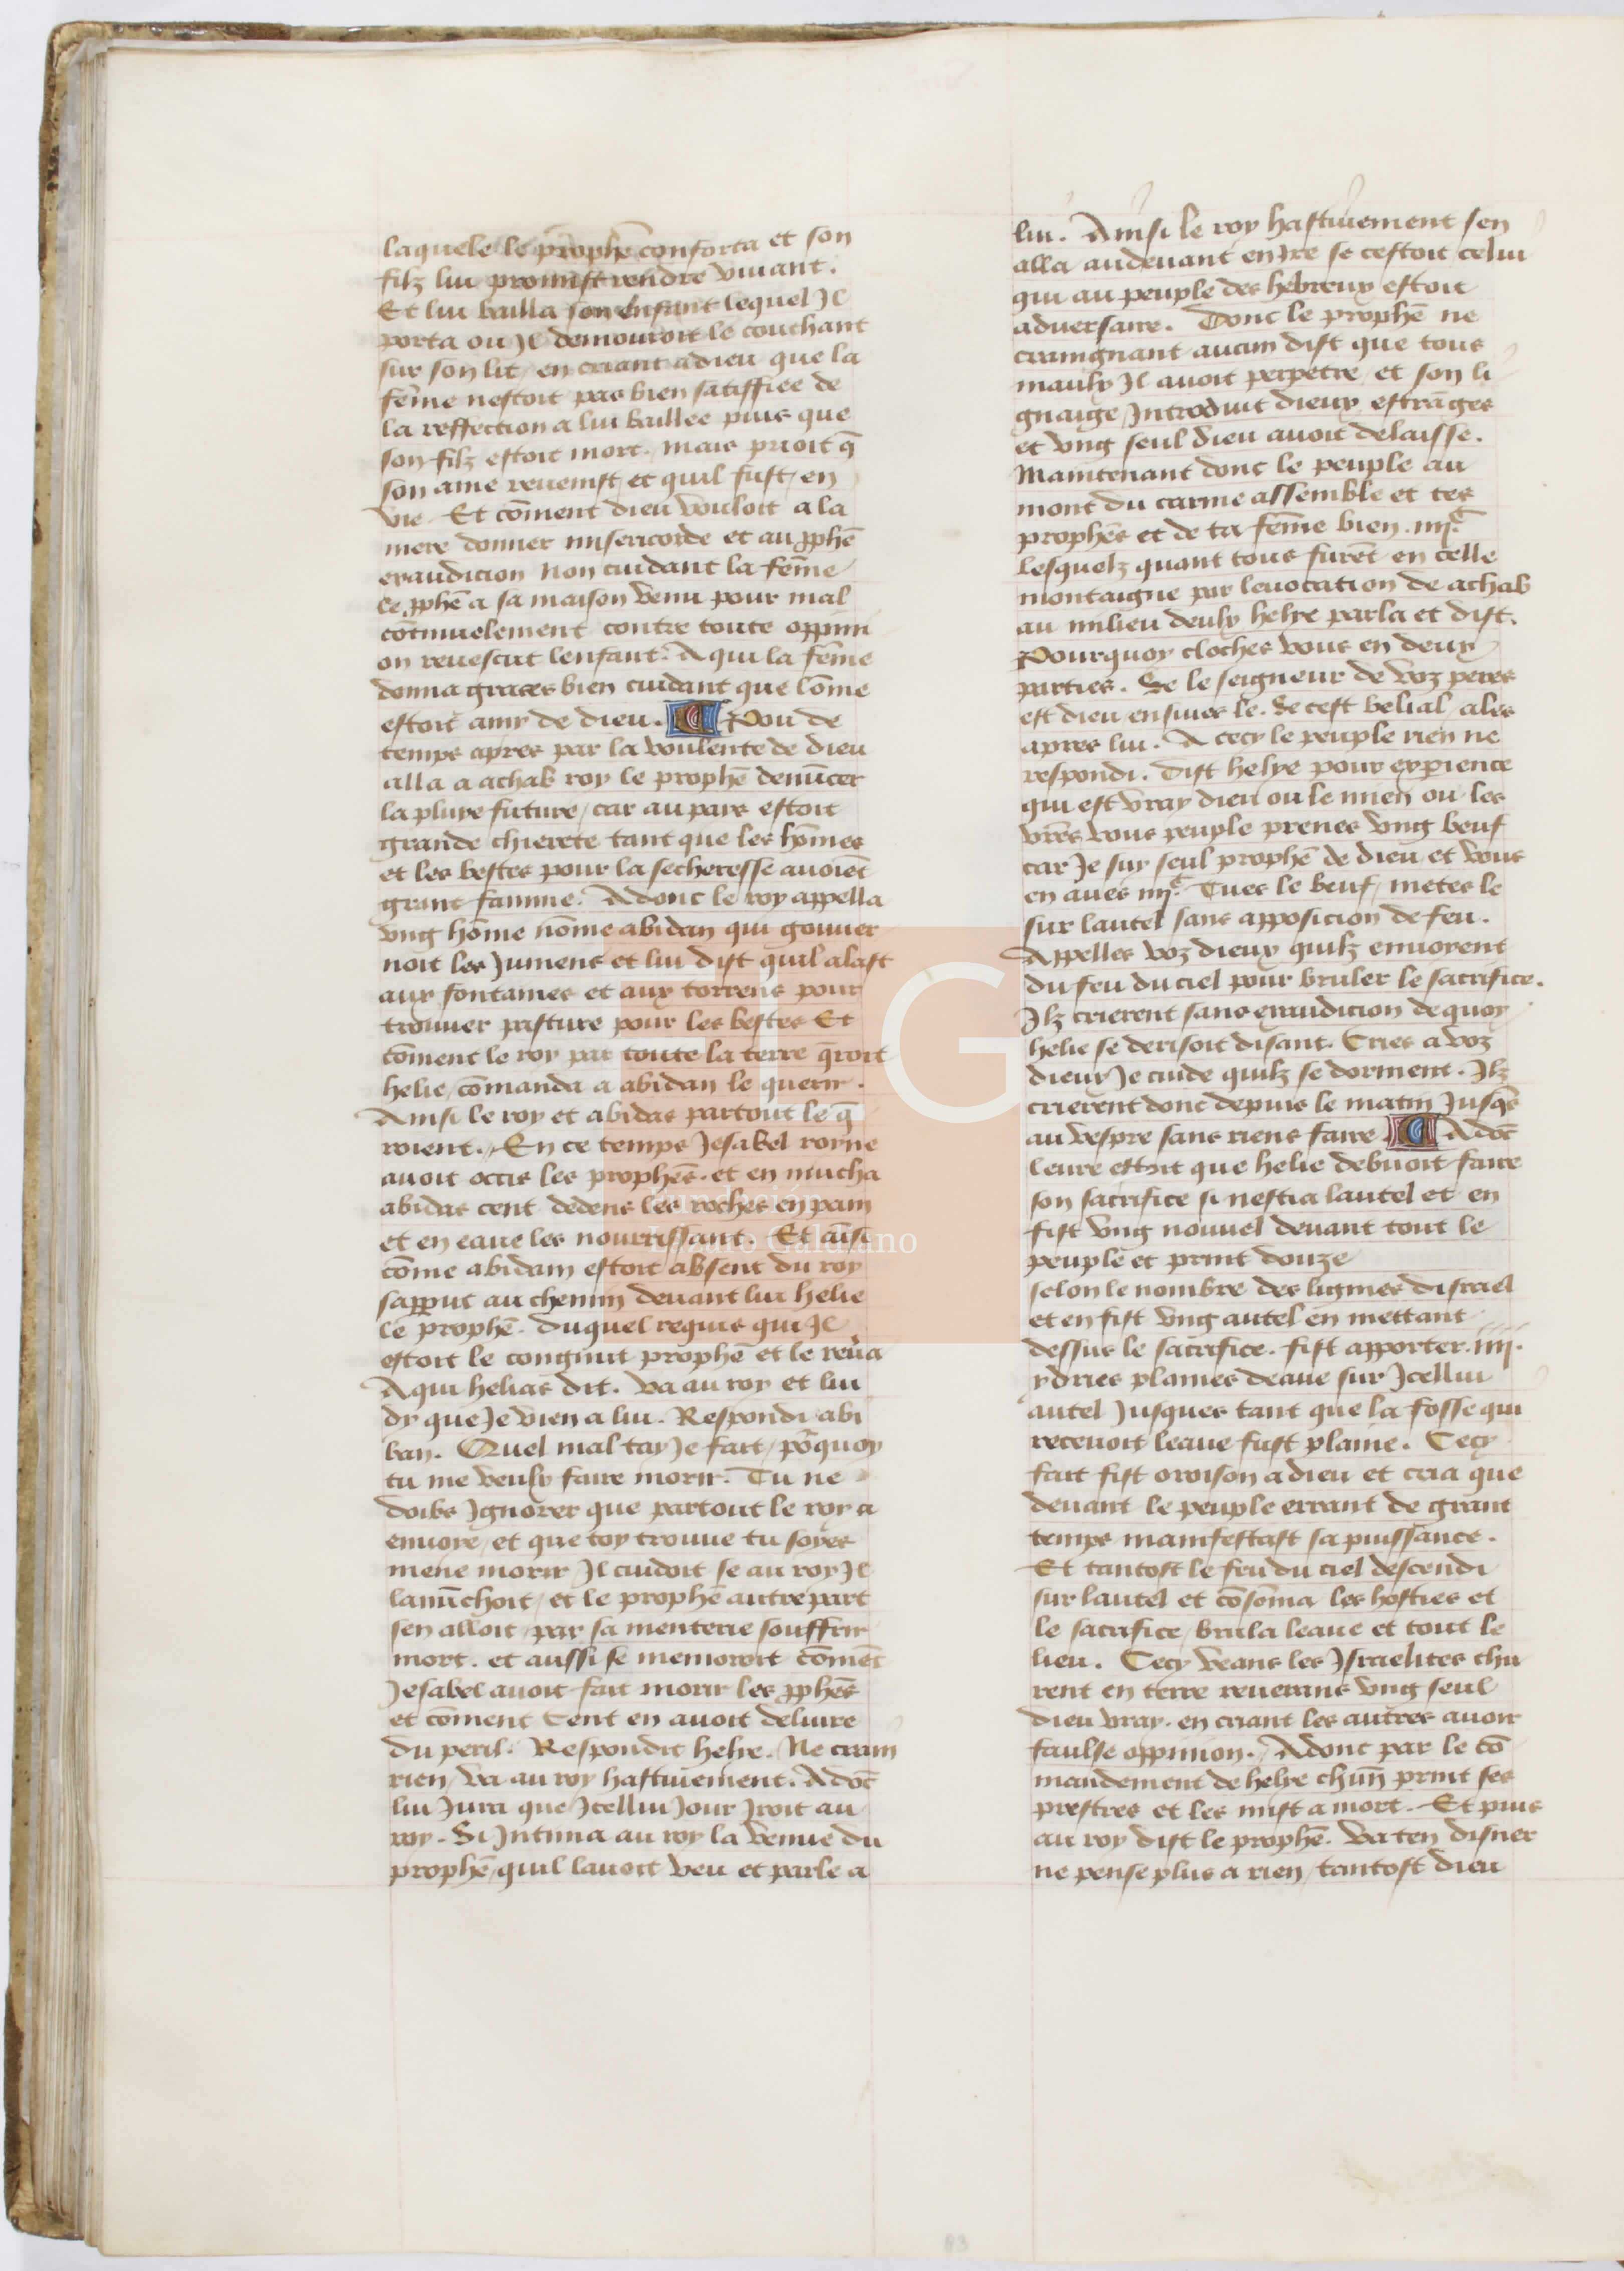 laquele le prophē conforta et son
filz lui promist rendre viuant.
Et lui bailla son enfant lequel Il
porta ou Il demouroit le couchant
sur son lit / en criant a dieu que la
fēme nestoit pas bien satiffiee de
la reffection a lui baillee puis que
son filz estoit mort. mais prioit q̄
son ame reuenist / et quil fust / en
vie. Et cōment dieu vouloit a la
mere donner misericorde et au ꝓphē
exaudicion non cuidant la fēme
le ꝓphē a sa maison venu pour mal
cōtinuelement contre toute oppini
on reuescut lenfant. A qui la fēme
donna graces bien cuidant que lōme
estoit amy de dieu. Pou de
temps apres par la voulente de dieu
alla a achab roy le prophē denūcer
la pluye future / car au pais estoit
grande chierete tant que les hōmes
et les bestes pour la secheresse auoiēt
grant famine. Adonc le roy appella
vng hōme nōme abidan qui gouuer
noit les Jumens et lui dist quil alast
aux fontaines et aux torrens pour
trouuer pasture pour les bestes Et
cōment le roy par toute la terre q̄roit
helie / cōmanda a abidan le querir.
Ainsi le roy et abidas partout le q̄
roient. En ce temps Jesabel royne
auoit occis les prophēs. et en mucha
abidas cent dedens les roches en pain
et en eaue les nourrissant. Et aīsi
cōme abidam estoit absent du roy
sapparut au chemin deuant lui helie
le prophē. duquel requis qui Il
estoit le congnut prophē et le reūa
A qui helias dit. va au roy et lui
dy que Je vien a lui. Respondi abi
ban. Quel mal tay Je fait / pōrquoy
tu me veulx faire morir. Tu ne
doibs Ignorer que partout le roy a
enuoye / et que toy trouue tu soyes
mene morir Il cuidoit se au roy Il
lanūchoit / et le prophē autre part
sen alloit / par sa menterie souffrir
mort. et aussi se memoroit cōmēt
Jesabel auoit fait morir les ꝓphēs
et cōment Cent en auoit deliure
du peril. Respondit helye. Ne crain
rien / va au roy hastiuement. Adōc
lui Jura que Icellui Jour Iroit au
roy. Si Intima au roy la venue du
prophē / quil lauoit veu et parle a
lui. Ainsi le roy hastiuement sen
alla audeuant enIre se cestoit celui
qui au peuple des hebreux estoit
aduersaire. Donc le prophē ne
craingnant aucun dist que tous
maulx Il auoit perpetre / et son li
gnaige / Introduit dieux estrāges
et vng seul dieu auoit delaisse.
Maintenant donc le peuple au
mont du carme assemble et tes
prophēs et de ta fēme bien .iiijᶜ
lesquelz quant tous furēt en celle
montaigne par leuocation de achab
au milieu deulx helye parla et dist.
Pourquoy cloches vous en deux
parties. Se le seigneur de voz peres
est dieu ensiues le. Se cest belial / ales
apres lui. A cecy le peuple rien ne
respondi. Dist helye pour expience
qui est vray dieu ou le mien ou les
vrēs vous peuple prenes vng beuf
car Je suy seul prophē de dieu et vous
en aues iiijᶜ. Tues le beuf / metes le
sur lautel sans apposicion de feu.
Appelles voz dieux quilz enuoyent
du feu du ciel pour bruler le sacrifice.
Ilz crierent sans exaudicion de quoy
helie se derisoit disant. Cries a voz
dieux Je cuide quilz se dorment. Ilz
crierent donc depuis le matin Jusq̄s
au vespre sans riens faire. Adōc
leure estoit que helie debuoit faire
son sacrifice si nestia lautel et en
fist vng nouuel deuant tout le
peuple et print douze
selon le nombre des lignies disrael
et en fist vng autel en mettant
dessus le sacrifice. fist apporter .iiij.
ydries plaines deaue sur Icellui
autel Jusques tant que la fosse qui
receuoit leaue fust plaine. Cecy
fait fist oroison a dieu et cria que
deuant le peuple errant de grant
temps manifestast sa puissance.
Et tantost le feu du ciel descendi
sur lautel et cōsōma les hosties et
le sacrifice / brula leaue et tout le
lieu. Cecy veans les Israelites chu
rent en terre reuerans vng seul
dieu vray. en criant les autres auoir
faulse oppinion. Adonc par le cō
mandement de helye chūn print ses
prestres et les mist a mort. Et puis
au roy dist le prophē. va ten disner
ne pense plus a rien / tantost dieu
Fundación
Lázaro Galdiano